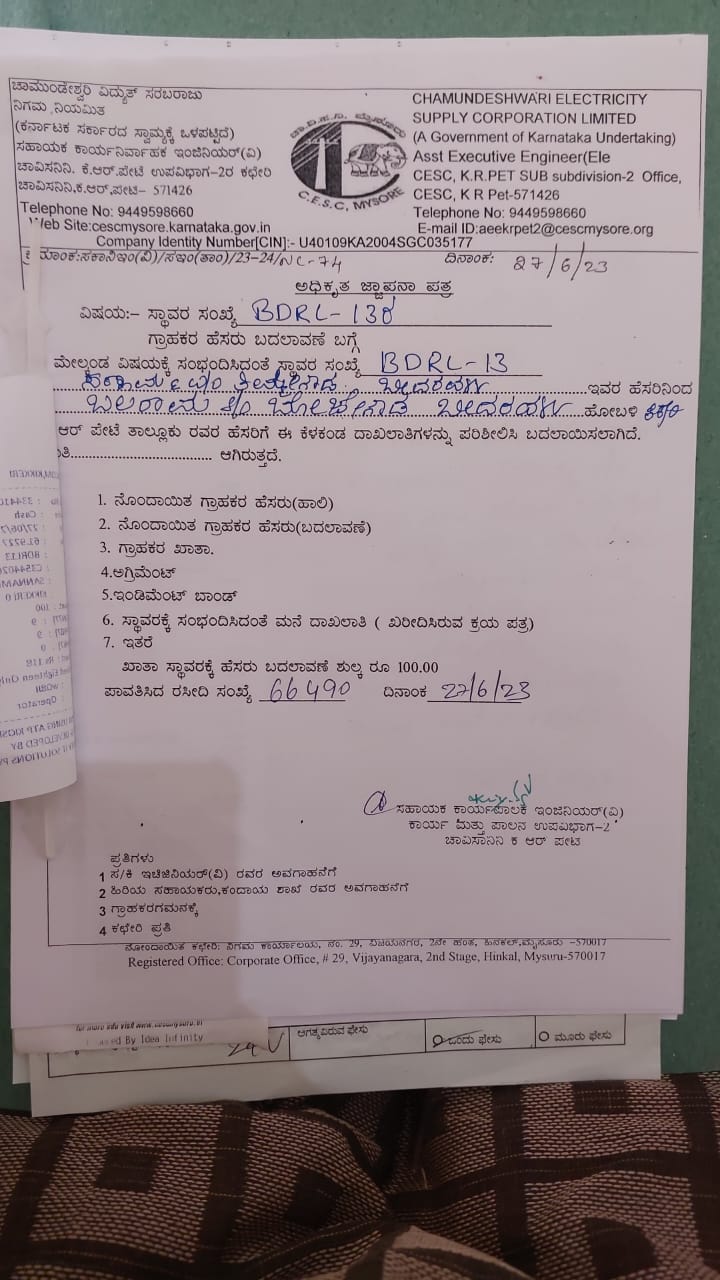 ಚಾಮುಂಡೇಶ್ವರಿ ವಿದ್ಯುತ್ ಸರಬರಾಜು
ನಿಗಮ ನಿಯಮಿತ
(ಕರ್ನಾಟಕ ಸರ್ಕಾರದ ಸ್ವಾಮ್ಯಕ್ಕೆ ಒಳಪಟ್ಟಿದೆ)
ಸಹಾಯಕ ಕಾರ್ಯನಿರ್ವಾಹಕ ಇಂಜಿನಿಯರ್(ವಿ)
ಚಾವಿಸನಿನಿ. ಕೆ.ಆರ್.ಪೇಟೆ ಉಪವಿಭಾಗ-2ರ ಕಛೇರಿ
ಚಾವಿಸನಿನಿ,ಕ.ಆರ್.ಪೇಟೆ- 571426
Telephone No: 9449598660
Web Site:cescmysore.karnataka.gov.in
C.E.S.C, MYSORE
CHAMUNDESHWARI ELECTRICITY
SUPPLY CORPORATION LIMITED
(A Government of Karnataka Undertaking)
Asst Executive Engineer(Ele
CESC, K.R.PET SUB subdivision-2 Office,
CESC, K R Pet-571426
Telephone No: 9449598660
E-mail ID:aeekrpet2@cescmysore.org
Company Identity Number[CIN]:- U40109KA2004SGC035177
ಕ್ರಮಾಂಕ:ಸಕಾನಿಇಂ(ವಿ)/ಸಇಂ(ತಾಂ)/23-24/NC-74 ದಿನಾಂಕ: 27/6/23
ಅಧಿಕೃತ ಜ್ಞಾಪನಾ ಪತ್ರ
ವಿಷಯ:- ಸ್ಥಾವರ ಸಂಖ್ಯೆ BDRL-13ರ
ಗ್ರಾಹಕರ ಹೆಸರು ಬದಲಾವಣೆ ಬಗ್ಗೆ
ಮೇಲ್ಕಂಡ ವಿಷಯಕ್ಕೆ ಸಂಭಂದಿಸಿದಂತೆ ಸ್ಥಾವರ ಸಂಖ್ಯೆ BDRL-13
ಇವರ ಹೆಸರಿನಿಂದ
ಬಲರಾಮ ಹೋಬಳಿ
ಆರ್ ಪೇಟೆ ತಾಲ್ಲೂಕು ರವರ ಹೆಸರಿಗೆ ಈ ಕೆಳಕಂಡ ದಾಖಲಾತಿಗಳನ್ನು ಪರಿಶೀಲಿಸಿ ಬದಲಾಯಿಸಲಾಗಿದೆ.
ಆಗಿರುತ್ತದೆ.
1. ನೊಂದಾಯಿತ ಗ್ರಾಹಕರ ಹೆಸರು(ಹಾಲಿ)
2. ನೊಂದಾಯಿತ ಗ್ರಾಹಕರ ಹೆಸರು(ಬದಲಾವಣೆ)
3. ಗ್ರಾಹಕರ ಖಾತಾ.
4.ಅಗ್ರಿಮೆಂಟ್
5.ಇಂಡಿಮೆಂಟ್ ಬಾಂಡ್
6. ಸ್ಥಾವರಕ್ಕೆ ಸಂಭಂದಿಸಿದಂತೆ ಮನೆ ದಾಖಲಾತಿ ( ಖರೀದಿಸಿರುವ ಕ್ರಯ ಪತ್ರ)
7. ಇತರೆ
ಖಾತಾ ಸ್ಥಾವರಕ್ಕೆ ಹೆಸರು ಬದಲಾವಣೆ ಶುಲ್ಕ ರೂ 100.00
ಪಾವತಿಸಿದ ರಸೀದಿ ಸಂಖ್ಯೆ 66490 ದಿನಾಂಕ 27/6/23
ಸಹಾಯಕ ಕಾರ್ಯಪಾಲಕ ಇಂಜಿನಿಯರ್(ವಿ)
ಕಾರ್ಯ ಮತ್ತು ಪಾಲನ ಉಪವಿಭಾಗ-2
ಚಾವಿಸಾನಿನಿ ಕ ಆರ್ ಪೇಟೆ
ಪ್ರತಿಗಳು
1 ಸ/ಕಿ ಇಂಜಿನಿಯರ್(ವಿ) ರವರ ಅವಗಾಹನೆಗೆ
2 ಹಿರಿಯ ಸಹಾಯಕರು,ಕಂದಾಯ ಶಾಖೆ ರವರ ಅವಗಾಹನೆಗೆ
3 ಗ್ರಾಹಕರಗಮನಕ್ಕೆ
4 ಕಛೇರಿ ಪ್ರತಿ
ನೋಂದಾಯಿತ ಕಛೇರಿ: ನಿಗಮ ಕಾರ್ಯಾಲಯ, ನಂ. 29, ವಿಜಯನಗರ, 2ನೇ ಹಂತ, ಹಿನಕಲ್,ಮೈಸೂರು -570017
Registered Office: Corporate Office, # 29, Vijayanagara, 2nd Stage, Hinkal, Mysuru-570017
for more edu visit www.cescmysore.in
By Idea Infinity
ಅಗತ್ಯವಿರುವ ಫೇಸು
ಒಂದು ಫೇಸು
ಮೂರು ಫೇಸು